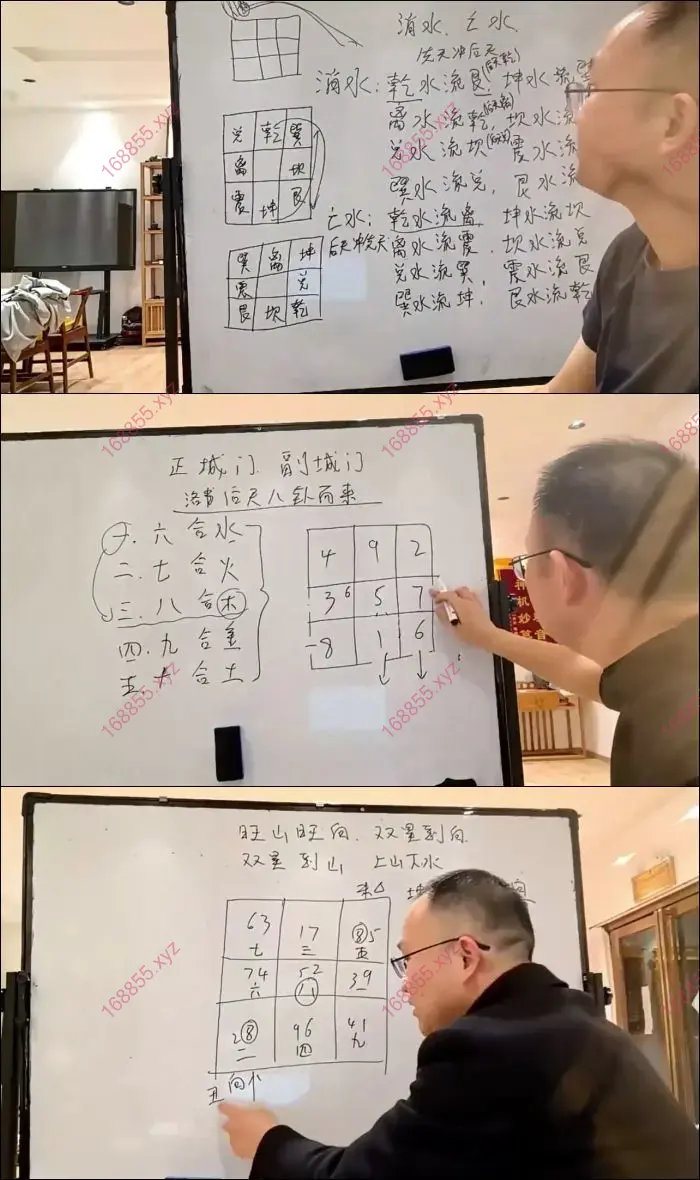 消水、亡水、
先天冲后天
消水：乾水流艮(后天乾)、坤水流
离水流乾、坎水流
兑水流坎、震水流
巽水流兑，艮水流
兑 乾 巽
离 坎
震 坤 艮
亡水：乾水流离、坤水流坎
后天冲先天 离水流震、坎水流兑
兑水流巽、震水流艮
巽水流坤，艮水流乾
巽 离 坤
震 兑
艮 坎 乾
正城门、副城门
洛书后天八卦而来
一、六合水
二、七合火
三、八合木
四、九合金
五、十合土
4 9 2
3 6 5 7
8 1 6
旺山旺向、双星到向
双星到山、上山下水
未
63 17 ⑧5
七 三 五
74 52 39
六 八 一
2⑧ 96 41
二 四 九
丑 向
168855.xyz
168855.xyz
168855.xyz
168855.xyz
168855.xyz
168855.xyz
168855.xyz
168855.xyz
168855.xyz
168855.xyz
168855.xyz
168855.xyz